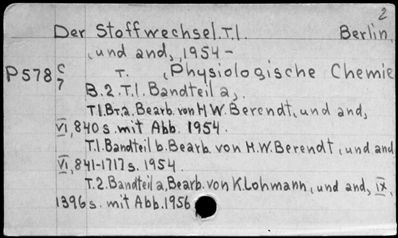 2
Der Stoffwechsel. T.1. Berlin,
und and, 1954 -
P578 C/7 T. , Physiologische Chemie
B.2. T.1. Bandteil a,.
T1. Bт.a. Bearb. von H.W. Berendt, und and,
VI, 840 s. mit Abb. 1954.
T.1. Bandteil b. Bearb. von H.W. Berendt, und and
VI, 841-1717 s. 1954.
T.2. Bandteil a, Bearb. von K. Lohmann, und and, IX,
1396 s. mit Abb. 1956